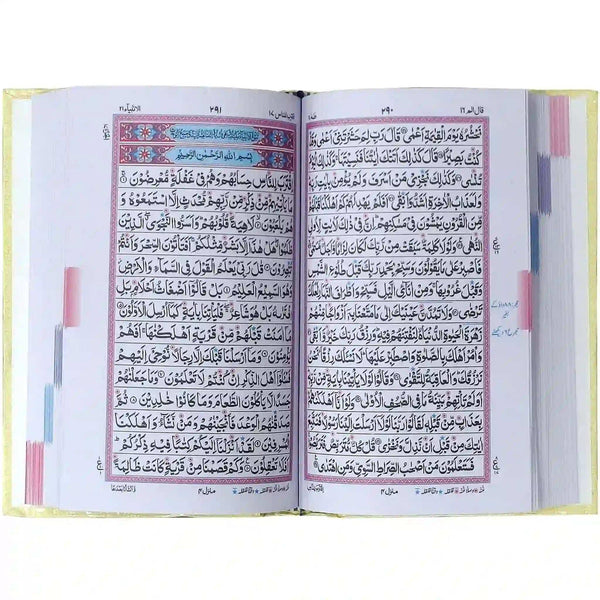 قال الم ١٦
٢٩٠
وَّنَحْشُرُهٗ يَوْمَ الْقِيٰمَةِ اَعْمٰى قَالَ رَبِّ لِمَ حَشَرْتَنِيْٓ اَعْمٰى وَقَدْ
كُنْتُ بَصِيْرًا قَالَ كَذٰلِكَ اَتَتْكَ اٰيٰتُنَا فَنَسِيْتَهَا وَكَذٰلِكَ الْيَوْمَ
تُنْسٰى وَكَذٰلِكَ نَجْزِيْ مَنْ اَسْرَفَ وَلَمْ يُؤْمِنْۢ بِاٰيٰتِ رَبِّهٖ
وَلَعَذَابُ الْاٰخِرَةِ اَشَدُّ وَاَبْقٰى اَفَلَمْ يَهْدِ لَهُمْ كَمْ اَهْلَكْنَا قَبْلَهُمْ
مِّنَ الْقُرُوْنِ يَمْشُوْنَ فِيْ مَسٰكِنِهِمْ اِنَّ فِيْ ذٰلِكَ لَاٰيٰتٍ لِّاُولِي
النُّهٰى وَلَوْلَا كَلِمَةٌ سَبَقَتْ مِنْ رَّبِّكَ لَكَانَ لِزَامًا وَّاَجَلٌ مُّسَمًّى
فَاصْبِرْ عَلٰى مَا يَقُوْلُوْنَ وَسَبِّحْ بِحَمْدِ رَبِّكَ قَبْلَ طُلُوْعِ الشَّمْسِ
وَقَبْلَ غُرُوْبِهَا وَمِنْ اٰنَآئِ الَّيْلِ فَسَبِّحْ وَاَطْرَافَ النَّهَارِ لَعَلَّكَ
تَرْضٰى وَلَا تَمُدَّنَّ عَيْنَيْكَ اِلٰى مَا مَتَّعْنَا بِهٖٓ اَزْوَاجًا مِّنْهُمْ
زَهْرَةَ الْحَيٰوةِ الدُّنْيَا لِنَفْتِنَهُمْ فِيْهِ وَرِزْقُ رَبِّكَ خَيْرٌ وَّاَبْقٰى
وَاْمُرْ اَهْلَكَ بِالصَّلٰوةِ وَاصْطَبِرْ عَلَيْهَا لَا نَسْئَلُكَ رِزْقًا نَحْنُ
نَرْزُقُكَ وَالْعَاقِبَةُ لِلتَّقْوٰى وَقَالُوْا لَوْلَا يَاْتِيْنَا بِاٰيَةٍ مِّنْ رَّبِّهٖ
اَوَلَمْ تَاْتِهِمْ بَيِّنَةُ مَا فِي الصُّحُفِ الْاُوْلٰى وَلَوْ اَنَّآ اَهْلَكْنٰهُمْ
بِعَذَابٍ مِّنْ قَبْلِهٖ لَقَالُوْا رَبَّنَا لَوْلَآ اَرْسَلْتَ اِلَيْنَا رَسُوْلًا فَنَتَّبِعَ
اٰيٰتِكَ مِنْ قَبْلِ اَنْ نَّذِلَّ وَنَخْزٰى قُلْ كُلٌّ مُّتَرَبِّصٌ فَتَرَبَّصُوْا
فَسَتَعْلَمُوْنَ مَنْ اَصْحٰبُ الصِّرَاطِ السَّوِيِّ وَمَنِ اهْتَدٰى
منزل ٤
اقترب للناس ١٧
٢٩١
الانبيآء ٢١
بِسْمِ اللهِ الرَّحْمٰنِ الرَّحِيْمِ
اِقْتَرَبَ لِلنَّاسِ حِسَابُهُمْ وَهُمْ فِيْ غَفْلَةٍ مُّعْرِضُوْنَ
مَا يَاْتِيْهِمْ مِّنْ ذِكْرٍ مِّنْ رَّبِّهِمْ مُّحْدَثٍ اِلَّا اسْتَمَعُوْهُ وَ
هُمْ يَلْعَبُوْنَ لَاهِيَةً قُلُوْبُهُمْ وَاَسَرُّوا النَّجْوَى الَّذِيْنَ
ظَلَمُوْا هَلْ هٰذَآ اِلَّا بَشَرٌ مِّثْلُكُمْ اَفَتَاْتُوْنَ السِّحْرَ وَاَنْتُمْ
تُبْصِرُوْنَ قٰلَ رَبِّيْ يَعْلَمُ الْقَوْلَ فِي السَّمَآءِ وَالْاَرْضِ
وَهُوَ السَّمِيْعُ الْعَلِيْمُ بَلْ قَالُوْٓا اَضْغَاثُ اَحْلَامٍۭ بَلِ
افْتَرٰىهُ بَلْ هُوَ شَاعِرٌ فَلْيَاْتِنَا بِاٰيَةٍ كَمَآ اُرْسِلَ الْاَوَّلُوْنَ
مَآ اٰمَنَتْ قَبْلَهُمْ مِّنْ قَرْيَةٍ اَهْلَكْنٰهَا اَفَهُمْ
يُؤْمِنُوْنَ وَمَآ اَرْسَلْنَا قَبْلَكَ اِلَّا رِجَالًا نُّوْحِيْٓ اِلَيْهِمْ
فَسْئَلُوْٓا اَهْلَ الذِّكْرِ اِنْ كُنْتُمْ لَا تَعْلَمُوْنَ وَمَا جَعَلْنٰهُمْ
جَسَدًا لَّا يَاْكُلُوْنَ الطَّعَامَ وَمَا كَانُوْا خٰلِدِيْنَ ثُمَّ
صَدَقْنٰهُمُ الْوَعْدَ فَاَنْجَيْنٰهُمْ وَمَنْ نَّشَآءُ وَاَهْلَكْنَا
الْمُسْرِفِيْنَ لَقَدْ اَنْزَلْنَآ اِلَيْكُمْ كِتٰبًا فِيْهِ ذِكْرُكُمْ
اَفَلَا تَعْقِلُوْنَ وَكَمْ قَصَمْنَا مِنْ قَرْيَةٍ كَانَتْ ظَالِمَةً
منزل ٤